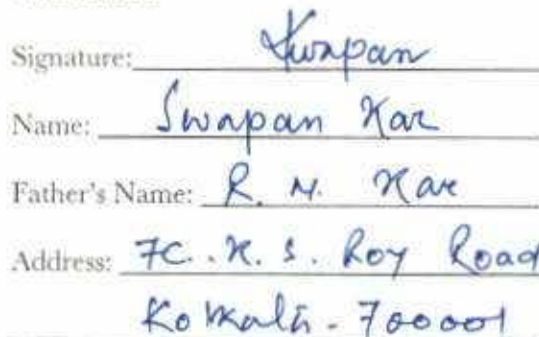 Signature: Swapan
Name: Swapan Kar
Father's Name: R. N. Kar
Address: 7C. K. S. Roy Road
Kolkata - 700001